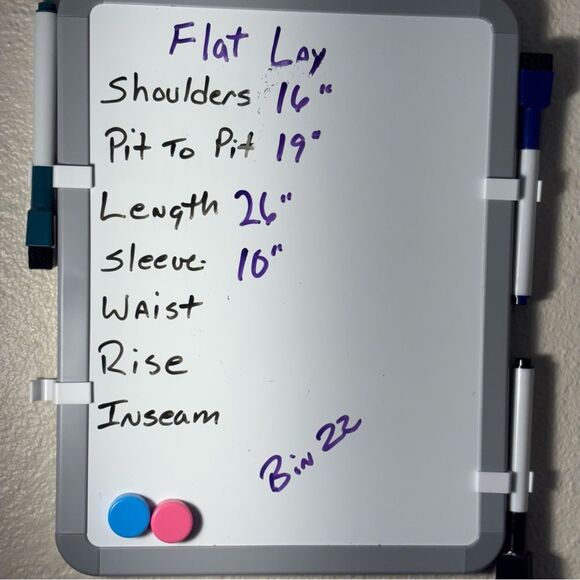 Flat Lay
Shoulders 16"
Pit To Pit 19"
Length 26"
Sleeve. 10"
Waist
Rise
Inseam
Bin 22